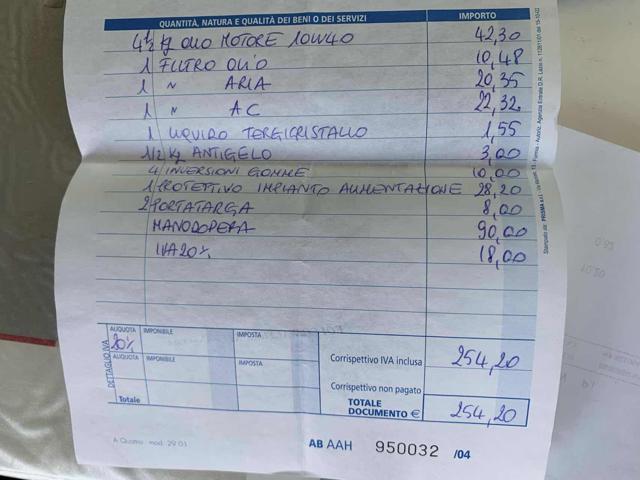 QUANTITÀ, NATURA E QUALITÀ DEI BENI O DEI SERVIZI IMPORTO
4½ Kg OLIO MOTORE 10W40 42,30
1 FILTRO OLIO 10,48
1 " ARIA 20,35
1 " AC 22,32
1 LIQUIDO TERGICRISTALLO 1,55
1/2 Kg ANTIGELO 3,00
4 INVERSIONI GOMME 10,00
1 PROTETTIVO IMPIANTO ALIMENTAZIONE 28,20
2 PORTATARGA 8,00
MANODOPERA 90,00
IVA 20% 18,00
DETTAGLIO IVA
ALIQUOTA IMPONIBILE IMPOSTA
20%
ALIQUOTA IMPONIBILE IMPOSTA
Totale
Corrispettivo IVA inclusa 254,20
Corrispettivo non pagato
TOTALE DOCUMENTO € 254,20
AB AAH 950032 /04